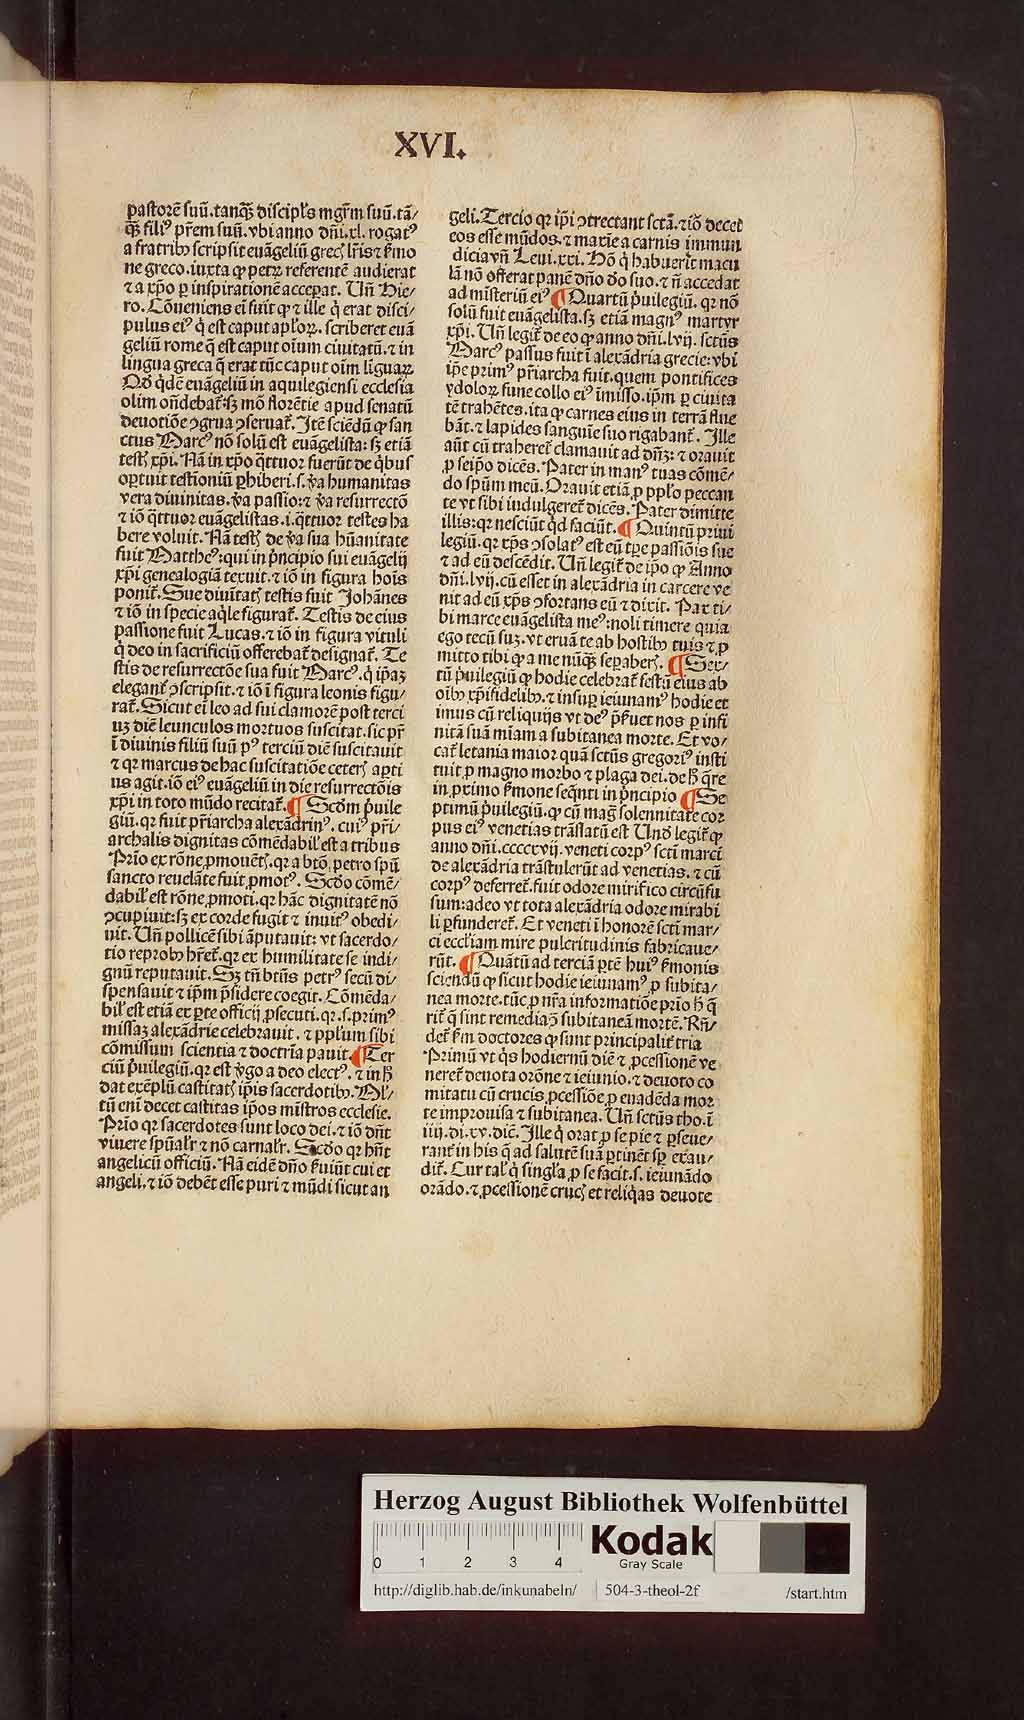 XVI.
pastorē suū.tanq̄ꝫ discipl's mgr̄m suū.tā/
q̄ꝫ filiꝰ pr̄em suū.vbi anno dn̄i.xl. rogatꝰ
a fratribꝫ scripsit euāgeliū grecꝭ lr̄is ⁊ ẜmo
ne greco.iuxta ꝙ petrꝫ referentē audierat
⁊ a xp̄o ꝑ inspirationē acceꝑat. Un̄ Hie/
ro. Cōueniens ei fuit ꝙ ⁊ ille q̇ erat disci/
pulus eiꝰ q̇ est caput apl'oꝝ. scriberet euā
geliū rome q̄ est caput oīum ciuitatū.⁊ in
lingua greca q̄ erat tūc caput oīm līguaꝝ
Qd̓ q̇dē euāgeliū in aquilegiensi ecclesia
olim on̄debat᷑.sꝫ mō florētie apud senatū
deuotiōe ꝯgrua ꝯseruat᷑. Itē sciēdū ꝙ san
ctus Marcꝰ nō solū est euāgelista: sꝫ etiā
testꝭ xp̄i. Nā in xp̄o q̄ttuor fuerūt de q̇bus
oꝑtuit testīoniū ꝑhiberi.s. v̓a humanitas
vera diuinitas. v̓a passio:⁊ v̓a resurrectō
⁊ iō q̄ttuor euāgelistas.i.q̄ttuor testes ha
bere voluit. Nā testꝭ de v̓a sua hūanitate
fuit Mattheꝰ: qui in p̓ncipio sui euāgelij
xp̄i genealogiā texuit.⁊ iō in figura hoīs
ponit᷑. Sue diuītatꝭ testis fuit Johānes
⁊ iō in specie aq̇le figurat᷑. Testis de eius
passione fuit Lucas.⁊ iō in figura vituli
q̇ deo in sacrificiū offerebat᷑ designat᷑. Te
stis de resurrectōe sua fuit Marcꝰ. q̇ ip̄aꝫ
elegant᷑ ꝯscripsit.⁊ iō ī figura leonis figu/
rat᷑. Sicut ei leo ad sui clamorē post terci
uꝫ diē leunculos mortuos suscitat.sic pr̄
ī diuinis filiū suū pꝰ terciū diē suscitauit
⁊ qꝛ marcus de hac suscitatiōe ceterꝭ aꝑti
us agit.iō eiꝰ euāgeliū in die resurrectōis
xp̄i in toto mūdo recitat᷑. ¶ Scd̓m p̓uile
giū.qꝛ fuit pr̄iarcha alexādrinꝰ. cuiꝰ pr̄i/
archalis dignitas cōmēdabil' est a tribus
Prīo ex rōne ꝓmouētꝭ.qꝛ a btō petro spū
sancto reuelāte fuit ꝓmotꝰ. Scd̓o cōmē/
dabil' est rōne ꝓmoti.qꝛ hāc dignitatē nō
ꝯcupiuit:sꝫ ex corde fugit ⁊ inuitꝰ obedi/
uit. Un̄ pollicē sibi āputauit: vt sacerdo/
tio reprobꝫ hr̄et᷑.qꝛ ex humilitate se indi/
gnū reputauit. Sꝫ tn̄ btūs petrꝰ secū di/
spensauit ⁊ ip̄m p̄sidere coegit. Cōmēda/
bil' est etiā ex ꝑte officij ꝓsecuti.qꝛ.s.primꝰ
missaꝫ alexādrie celebrauit. ⁊ ppl'um sibi
cōmissum scientia ⁊ doctrīa pauit. ¶ Ter
ciū p̓uilegiū.qꝛ est v̓go a deo electꝰ. ⁊ in ħ
dat exēplū castitatꝭ ip̄is sacerdotibꝫ. Ml'/
tū eni decet castitas ip̄os mīstros ecclesie.
Prīo qꝛ sacerdotes sunt loco dei.⁊ iō dn̄t
viuere spūal'r ⁊ nō carnal'r. Scd̓o qꝛ hn̄t
angelicū officiū. Nā eidē dn̄o ẜuiūt cui et
angeli.⁊ iō debēt esse puri ⁊ mūdi sicut an
geli. Tercio qꝛ ip̄i ꝯtrectant sctā.⁊ iō decet
eos esse mūdos.⁊ maxīe a carnis immun
dicia vn̄ Leui.xxi. Hō q̇ habuerit macu
lā nō offerat panē dn̄o d̓o suo.⁊ n̄ accedat
ad misteriū eiꝰ ¶ Quartū p̓uilegiū. qꝛ nō
solū fuit euāgelista.sꝫ etiā magnꝰ martyr
xp̄i. Un̄ legit᷑ de eo ꝙ anno dn̄i.lvij. sctūs
Marcꝰ passus fuit ī alexādria grecie:vbi
ip̄e primꝰ pr̄iarcha fuit.quem pontifices
ydoloꝝ fune collo eiꝰ īmisso.ip̄m ꝑ ciuita
tē trahētes.ita ꝙ carnes eius in terrā flue
bāt.⁊ lapides sanguīe suo rigabant᷑. Ille
aūt cū traheret᷑ clamauit ad dn̄ꝫ: ⁊ orauit
ꝓ seip̄o dicēs. Pater in manꝰ tuas cōmē/
do spūm meū. Orauit etiā ꝓ ppl'o peccan
te vt sibi indulgeret᷑ dicēs. Pater dimitte
illis:qꝛ nesciūt q̇d faciūt. ¶ Quintū priui
legiū.qꝛ xp̄s ꝯsolatꝰ est eū tp̄e passiōis sue
⁊ ad eū descēdit. Un̄ legit᷑ de ip̄o ꝙ Anno
dn̄i.lvij.cū esset in alexādria in carcere ve
nit ad eū xp̄s ꝯfortans eū ⁊ dixit. Pax ti/
bi marce euāgelista meꝰ:noli timere quia
ego tecū suꝫ.vt eruā te ab hostibꝫ tuis ⁊ ꝓ
mitto tibi ꝙ a me nūq̄ꝫ seꝑaberꝭ. ¶ Sex/
tū p̓uilegiū ꝙ hodie celebrat᷑ festū eius ab
oībꝫ xp̄ifidelibꝫ.⁊ insuꝑ ieiunamꝰ hodie et
imus cū reliquijs vt deꝰ p̄ẜuet nos ꝑ infi
nitā suā mīam a subitanea morte. Et vo/
cat᷑ letania maior quā sctūs gregoriꝰ insti
tuit ꝓ magno morbo ⁊ plaga dei.de ħ q̄re
in ꝓximo ẜmone seq̄nti in p̓ncipio ¶ Se
ptimū p̓uilegiū.ꝙ cū magꝭ solennitate cor
pus eiꝰ venetias trāslatū est Und̓ legit᷑ ꝙ
anno dn̄i.ccccxvij. veneti corpꝰ sctī marci
de alexādria trāstulerūt ad venetias. ⁊ cū
corpꝰ deferret᷑.fuit odore mirifico circūfu
sum:adeo vt tota alexādria odore mirabi
li ꝑfunderet᷑. Et veneti ī honorē sctī mar/
ci eccl'iam mire pulcritudinis fabricaue/
rūt. ¶ Quātū ad terciā ꝑtē huiꝰ ẜmonis
sciendū ꝙ sicut hodie ieiunamꝰ ꝓ subita/
nea morte.tūc ꝓ nr̄a informatiōe prīo ħ q̄
rit᷑ q̄ sint remedia ꝯ subitaneā mortē. Rn̄/
det᷑ ẜm doctores ꝙ sunt principalit᷑ tria
Primū vt q̇s hodiernū diē ⁊ ꝓcessionē ve
neret᷑ deuota orōne ⁊ ieiunio.⁊ deuoto co
mitatu cū crucis ꝓcessiōe ꝓ euadēda mor
te improuisa ⁊ subitanea. Un̄ sctūs tho.ī
iiij.di.xv.dic̄. Ille q̇ orat ꝓ se pie ⁊ ꝑseue/
rant᷑ in his q̄ ad salutē suā ꝑtinēt sꝑ exau/
dit᷑. Cur tal' q̇ singl'a ꝓ se facit.s. ieiunādo
orādo.⁊ ꝓcessionē crucꝭ et reliq̇as deuote
Herzog August Bibliothek Wolfenbüttel
0 1 2 3 4
Kodak
Gray Scale
http://diglib.hab.de/inkunabeln/ 504-3-theol-2f /start.htm